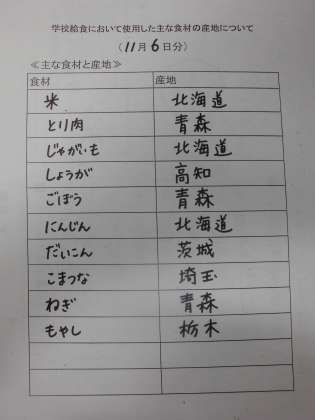 学校給食において使用した主な食材の産地について
(11月6日分)
≪主な食材と産地≫
食材 産地
米 北海道
とり肉 青森
じゃがいも 北海道
しょうが 高知
ごぼう 青森
にんじん 北海道
だいこん 茨城
こまつな 埼玉
ねぎ 青森
もやし 栃木